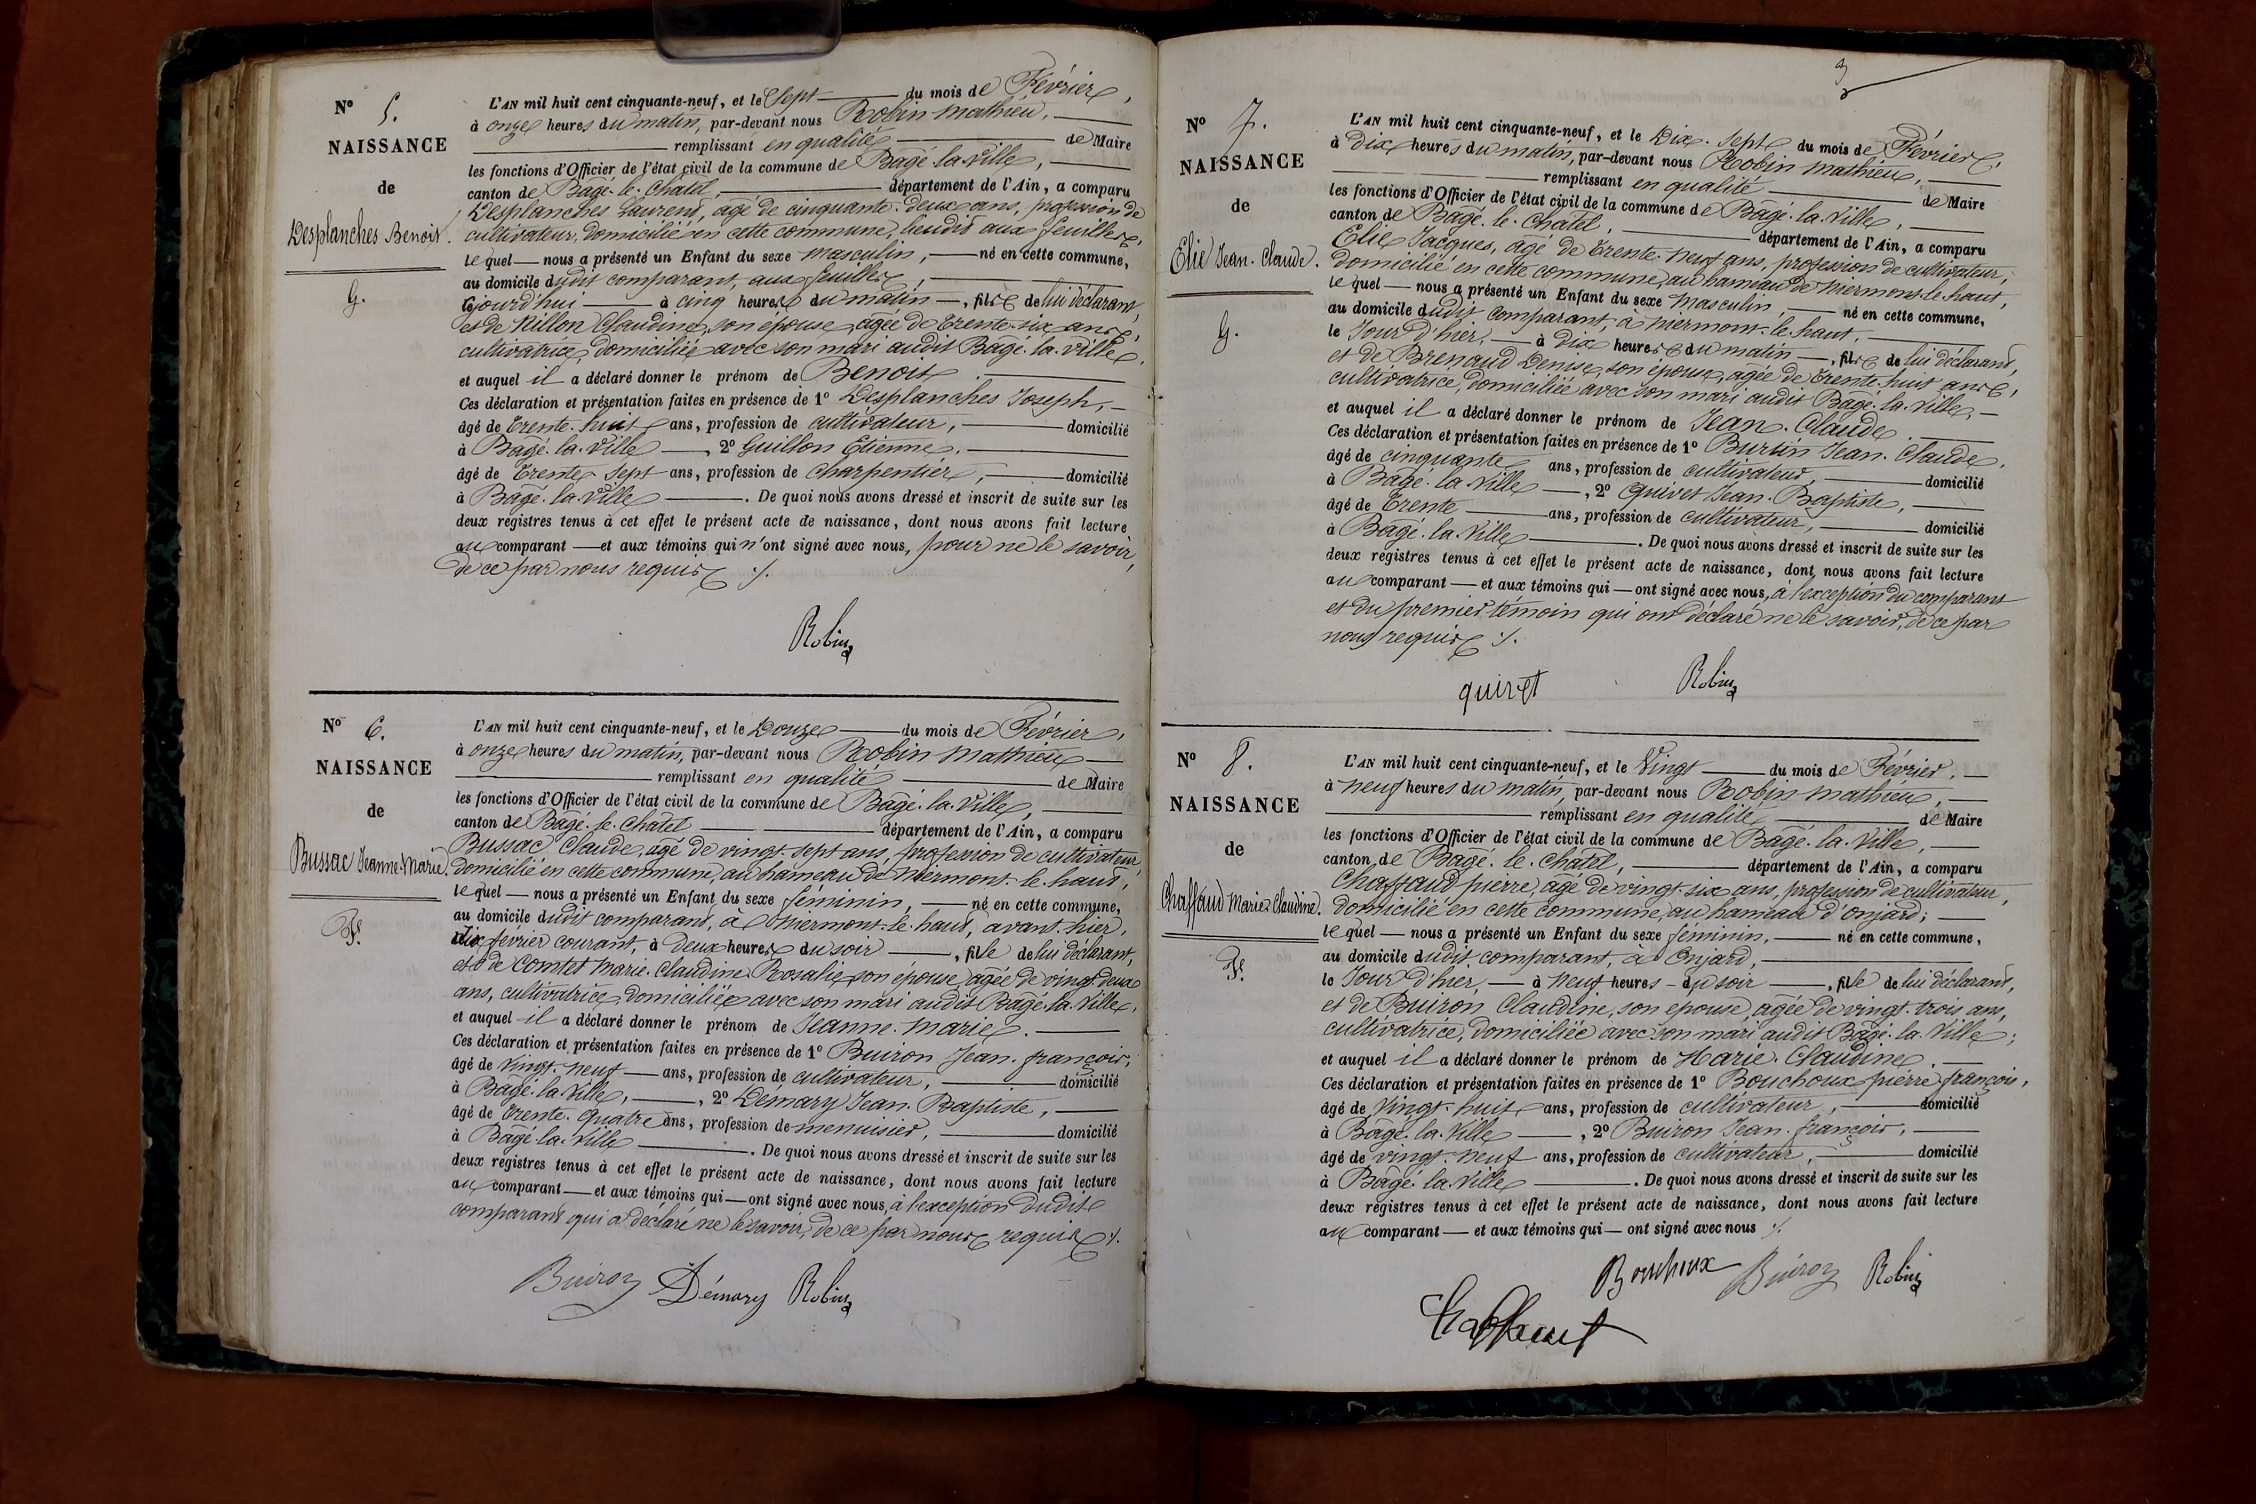 N° 5.
NAISSANCE
de
Desplanches Benoit.
G.
L'AN mil huit cent cinquante-neuf, et le Sept du mois de Février,
à onze heures du matin, par-devant nous Robin Mathieu,
remplissant en qualité de Maire
les fonctions d'Officier de l'état civil de la commune de Bâgé-la-Ville,
canton de Bâgé-le-Châtel, département de l'Ain, a comparu
Desplanches Laurent, agé de cinquante-deux ans, profession de
cultivateur, domicilié en cette commune, lieudit aux feuilles,
lequel nous a présenté un Enfant du sexe masculin, né en cette commune,
au domicile dudit comparant, aux feuilles,
aujourd'hui à cinq heures du matin, fils de lui déclarant,
et de Nillon Claudine, son épouse, agée de trente-six ans,
cultivatrice, domiciliée avec son mari audit Bâgé-la-Ville,
et auquel il a déclaré donner le prénom de Benoit.
Ces déclaration et présentation faites en présence de 1° Desplanches Joseph,
âgé de trente-huit ans, profession de cultivateur, domicilié
à Bâgé-la-Ville, 2° Guillon Etienne,
âgé de trente-sept ans, profession de charpentier, domicilié
à Bâgé-la-Ville. De quoi nous avons dressé et inscrit de suite sur les
deux registres tenus à cet effet le présent acte de naissance, dont nous avons fait lecture
au comparant et aux témoins qui n'ont signé avec nous, pour ne le savoir,
de ce par nous requis ./.
Robin
N° 6.
NAISSANCE
de
Bussac Jeanne-Marie.
F.
L'AN mil huit cent cinquante-neuf, et le Douze du mois de Février,
à onze heures du matin, par-devant nous Robin Mathieu
remplissant en qualité de Maire
les fonctions d'Officier de l'état civil de la commune de Bâgé-la-Ville,
canton de Bâgé-le-Châtel département de l'Ain, a comparu
Bussac Claude, agé de vingt-sept ans, profession de cultivateur,
domicilié en cette commune, au hameau de Miermont-le-haut,
lequel nous a présenté un Enfant du sexe féminin, né en cette commune,
au domicile dudit comparant, à Miermont-le-haut, avant-hier,
dix février courant, à deux heures du soir, fille de lui déclarant,
et de Comtet Marie-Claudine Rosalie, son épouse, agée de vingt-deux
ans, cultivatrice, domiciliée avec son mari audit Bâgé-la-Ville,
et auquel il a déclaré donner le prénom de Jeanne-Marie.
Ces déclaration et présentation faites en présence de 1° Buiron Jean-françois,
âgé de vingt-neuf ans, profession de cultivateur, domicilié
à Bâgé-la-Ville, 2° Démary Jean-Baptiste,
âgé de trente-quatre ans, profession de menuisier, domicilié
à Bâgé-la-Ville. De quoi nous avons dressé et inscrit de suite sur les
deux registres tenus à cet effet le présent acte de naissance, dont nous avons fait lecture
au comparant et aux témoins qui ont signé avec nous, à l'exception dudit
comparant qui a déclaré ne le savoir, de ce par nous requis ./.
Buiron Démary Robin
3
N° 7.
NAISSANCE
de
Elie Jean-Claude.
G.
L'AN mil huit cent cinquante-neuf, et le Dix-Sept du mois de Février,
à Dix heures du matin, par-devant nous Robin Mathieu,
remplissant en qualité de Maire
les fonctions d'Officier de l'état civil de la commune de Bâgé-la-Ville,
canton de Bâgé-le-Châtel, département de l'Ain, a comparu
Elie Jacques, agé de trente-neuf ans, profession de cultivateur,
domicilié en cette commune, au hameau de Miermont-le-haut,
lequel nous a présenté un Enfant du sexe masculin, né en cette commune,
au domicile dudit comparant, à Miermont-le-haut,
le Jour d'hier, à Dix heures du matin, fils de lui déclarant,
et de Brenaud Denise, son épouse, agée de trente-huit ans,
cultivatrice, domiciliée avec son mari audit Bâgé-la-Ville,
et auquel il a déclaré donner le prénom de Jean-Claude.
Ces déclaration et présentation faites en présence de 1° Burtin Jean-Claude,
âgé de cinquante ans, profession de cultivateur, domicilié
à Bâgé-la-Ville, 2° Quivet Jean-Baptiste,
âgé de trente ans, profession de cultivateur, domicilié
à Bâgé-la-Ville. De quoi nous avons dressé et inscrit de suite sur les
deux registres tenus à cet effet le présent acte de naissance, dont nous avons fait lecture
au comparant et aux témoins qui ont signé avec nous, à l'exception du comparant
et du premier témoin qui ont déclaré ne le savoir, de ce par
nous requis ./.
quivet Robin
N° 8.
NAISSANCE
de
Chaffaud Marie-Claudine.
F.
L'AN mil huit cent cinquante-neuf, et le Vingt du mois de Février,
à neuf heures du matin, par-devant nous Robin Mathieu,
remplissant en qualité de Maire
les fonctions d'Officier de l'état civil de la commune de Bâgé-la-Ville,
canton de Bâgé-le-Châtel, département de l'Ain, a comparu
Chaffaud pierre, agé de vingt-six ans, profession de cultivateur,
domicilié en cette commune, au hameau d'onjard;
lequel nous a présenté un Enfant du sexe féminin, né en cette commune,
au domicile dudit comparant, à Onjard,
le Jour d'hier, à neuf heures du soir, fille de lui déclarant,
et de Buiron Claudine, son épouse, agée de vingt-trois ans,
cultivatrice, domiciliée avec son mari audit Bâgé-la-Ville;
et auquel il a déclaré donner le prénom de Marie-Claudine.
Ces déclaration et présentation faites en présence de 1° Bouchoux pierre françois,
âgé de vingt-huit ans, profession de cultivateur, domicilié
à Bâgé-la-Ville, 2° Buiron Jean-françois,
âgé de vingt-neuf ans, profession de cultivateur, domicilié
à Bâgé-la-Ville. De quoi nous avons dressé et inscrit de suite sur les
deux registres tenus à cet effet le présent acte de naissance, dont nous avons fait lecture
au comparant et aux témoins qui ont signé avec nous ./.
Bouchoux Buiron Robin